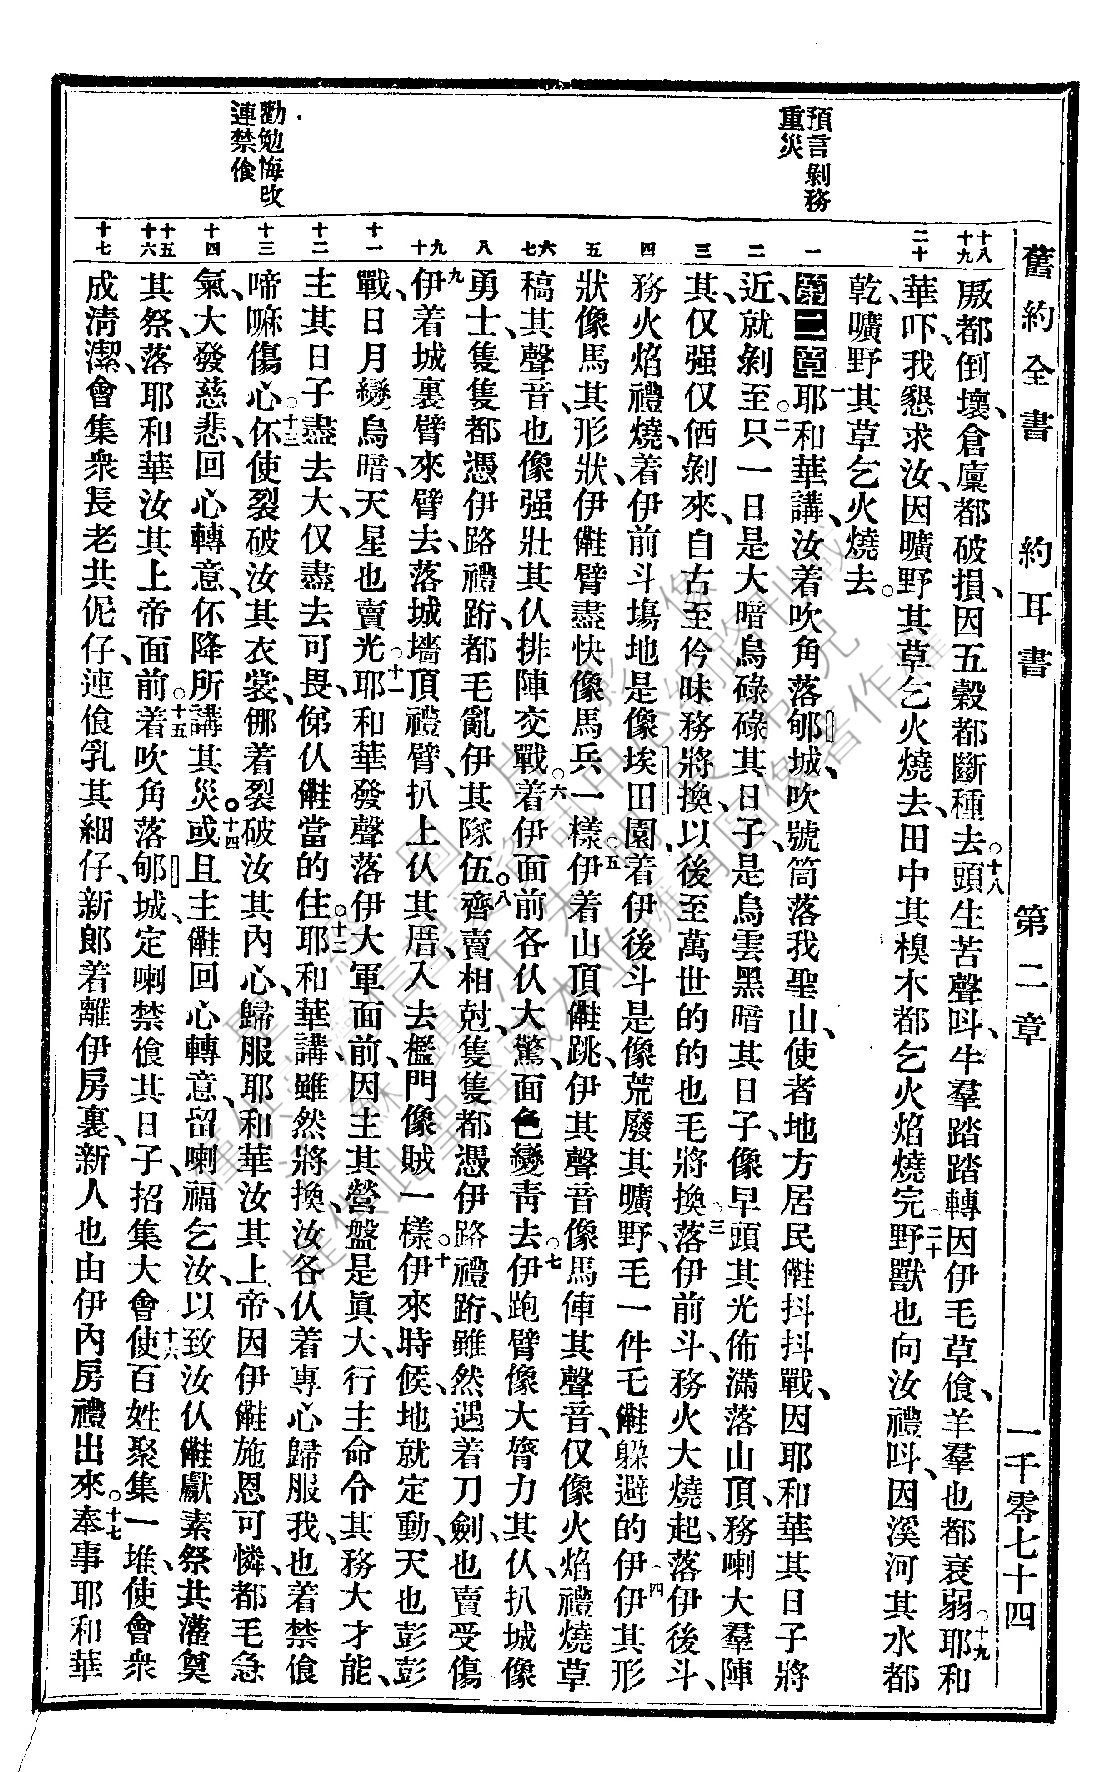 舊約全書　約耳書　第二章　一千零七十四
預言剝務
重災
勸勉悔改
連禁偹
十八
十九
二十
一
二
三
四
五
六
七
八
九
十
十一
十二
十三
十四
十五
十六
十七
厫都倒壞、倉廩都破損、因五穀都斷種去。十八頭生苦聲呌、牛羣踏踏轉、因伊毛草偹、羊羣也都衰弱。十九耶和
華吓、我懇求汝、因曠野其草乞火燒去、田中其模木都乞火焰燒完。二十野獸也向汝禮呌、因溪河其水都
乾、曠野其草乞火燒去。
第二章一耶和華講、汝着吹角落郇城、吹號筒落我聖山、使者地方居民㒺抖抖戰、因耶和華其日子將
近、就剝至。二只一日是大暗烏碌碌其日子、是烏雲黑暗其日子、像早頭其光佈滿落山頂、務喇大羣陣
其、仅强仅俩剝來、自古至仱昧務將換、以後至萬世的的也毛將換。三落伊前斗、務火大燒起、落伊後斗、
務火焰禮燒、着伊前斗塲地是像埃田園、着伊後斗是像荒廢其曠野、毛一件乇㒺躲避的伊。四伊其形
狀像馬其形狀、伊㒺臂盡快像馬兵一樣。五伊着山頂㒺跳、伊其聲音像馬俥其聲音、仅像火焰禮燒草
稿其聲音、也像强壯其仈排陣交戰。六着伊面前各仈大驚、面色變靑去。七伊跑臂像大膂力其仈、扒城像
勇士、隻隻都憑伊路禮跻、都毛亂伊其隊伍。八齊賣相尅、隻隻都憑伊路禮跻、雖然遇着刀劍、也賣受傷
九伊着城裏臂來臂去、落城墻頂禮臂、扒上仈其厝、入去檻門像賊一樣。十伊來時候、地就定動、天也彭彭
戰、日月變烏暗、天星也賣光。十一耶和華發聲落伊大軍面前、因主其營盤是眞大、行主命令其務大才能、
主其日子盡去大、仅盡去可畏、俤仈㒺當的住。十二耶和華講、雖然將換、汝各仈着專心歸服我、也着禁偹
啼嘛傷心。十三伓使裂破汝其衣裳、㑚着裂破汝其內心、歸服耶和華汝其上帝、因伊㒺施恩可憐、都毛急
氣、大發慈悲、回心轉意、伓降所講其災。十四或且主㒺回心轉意、留喇福乞汝、以致汝仈㒺獻素祭共灌奠
其祭、落耶和華汝其上帝面前。十五着吹角落郇城、定喇禁偹其日子、招集大會。十六使百姓聚集一堆、使會衆
成淸潔、會集衆長老共伲仔、連偹乳其細仔、新郞着離伊房裏、新人也由伊內房禮出來。十七奉事耶和華